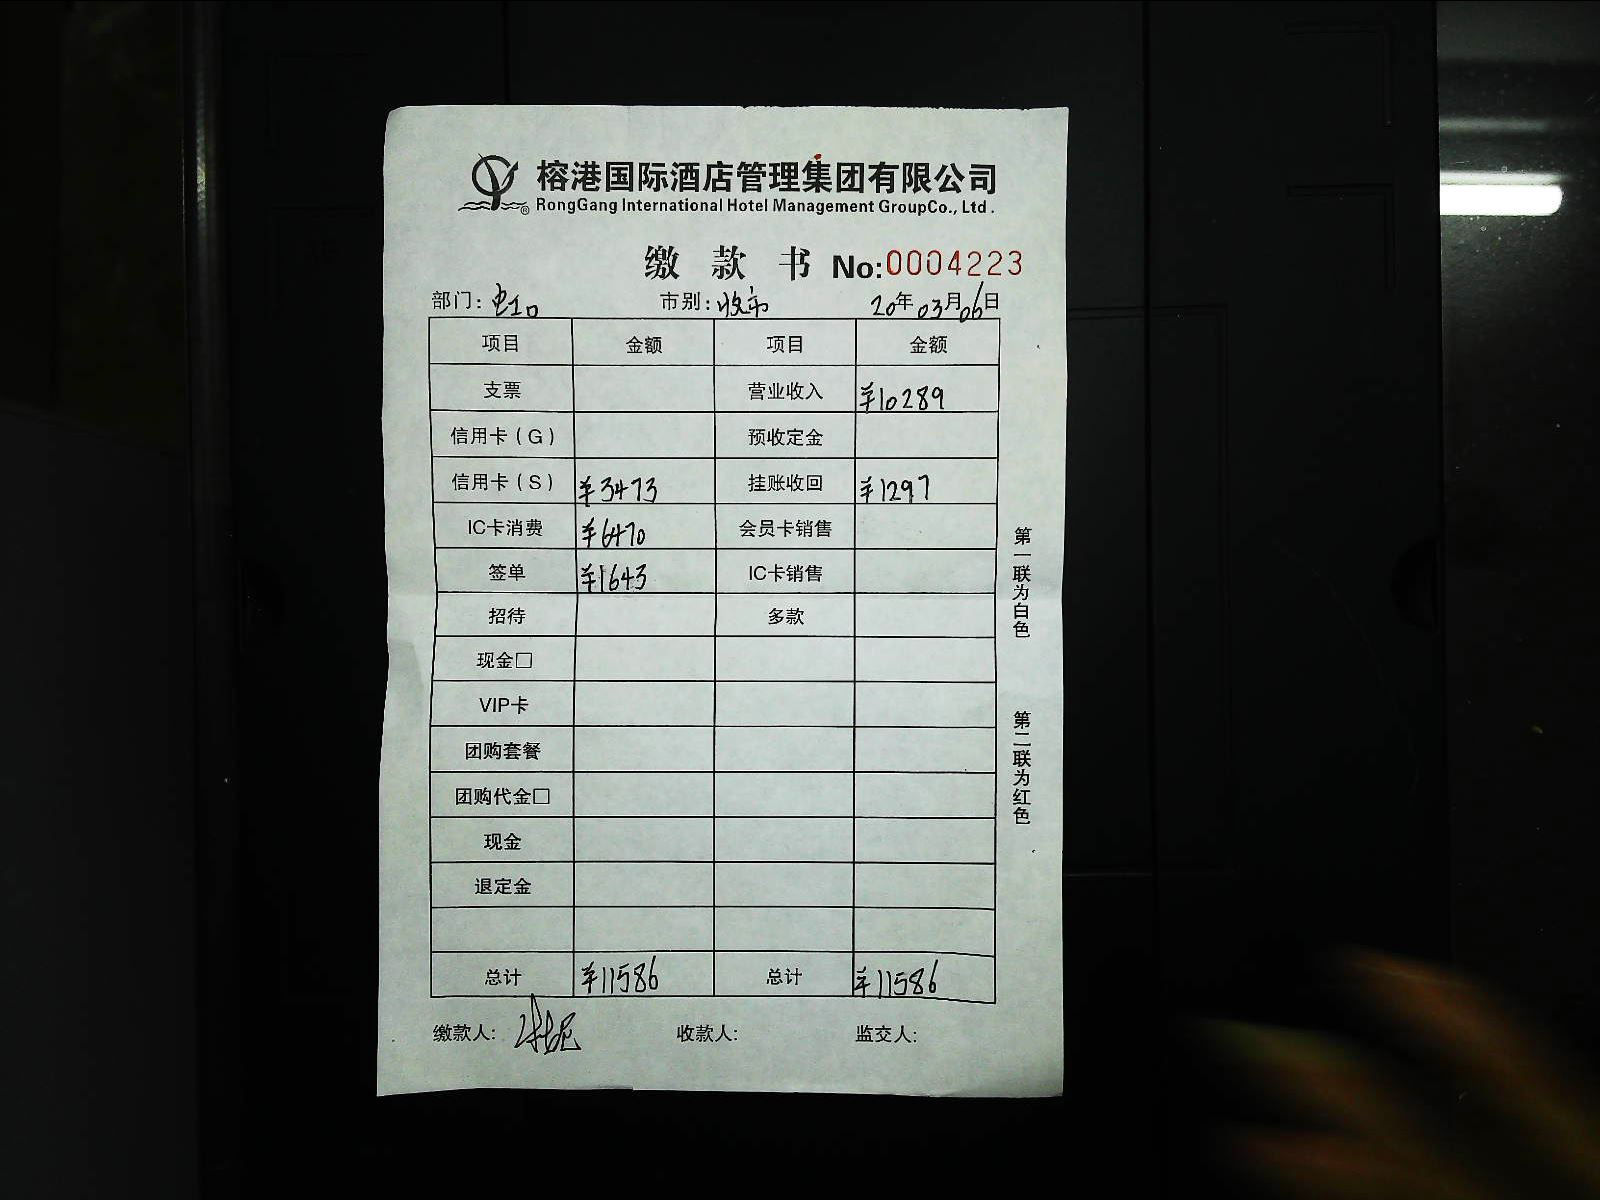 榕港国际酒店管理集团有限公司
RongGang International Hotel Management GroupCo., Ltd.
缴 款 书 No:0004223
部门: 虹口 市别: 收市 20年03月06日
项目 金额 项目 金额
支票 营业收入 ¥10289
信用卡(G) 预收定金
信用卡(S) ¥3473 挂账收回 ¥1297
IC卡消费 ¥6470 会员卡销售
签单 ¥1643 IC卡销售
招待 多款
现金□
VIP卡
团购套餐
团购代金□
现金
退定金
总计 ¥11586 总计 ¥11586
缴款人: 收款人: 监交人:
第一联为白色
第二联为红色